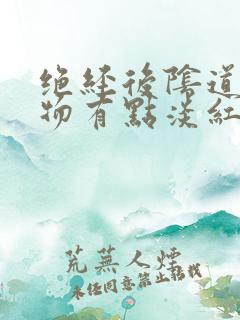 绝经後陰道
物有點淡紅
荒蕪人煙
未经同意禁止転载